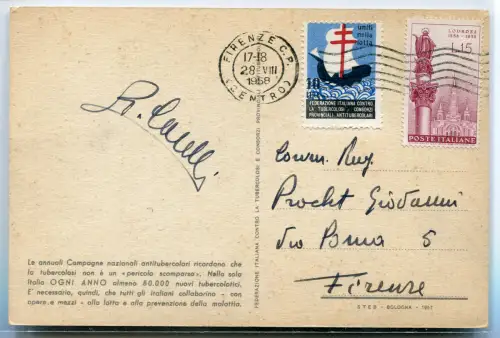 FIRENZE C.P.
17-18
28 VIII
1958
(CENTRO)
uniti
nella
lotta
10
LIRE
FEDERAZIONE ITALIANA CONTRO
LA TUBERCOLOSI / CONSORZI
PROVINCIALI ANTITUBERCOLARI
LOURDES
1858 - 1958
L.15
POSTE ITALIANE
Giovanni
5
Firenze
Le annuali Campagne nazionali antitubercolari ricordano che
la tubercolosi non è un «pericolo scomparso». Nella sola
Italia OGNI ANNO almeno 60.000 nuovi tubercolotici.
E' necessario, quindi, che tutti gli italiani collaborino - con
opere e mezzi - alla lotta e alla prevenzione della malattia.
FEDERAZIONE ITALIANA CONTRO LA TUBERCOLOSI E CONSORZI PROV
STEB - BOLOGNA - 1957